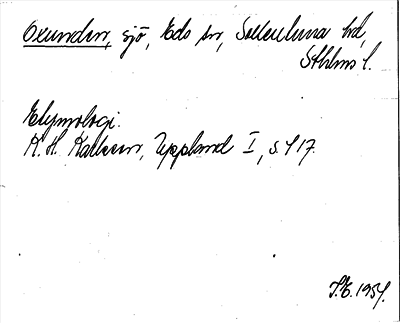 Oxunden, sjö, Eds sn, Sollentuna hd,
Sthlms l.
Etymologi.
K. H. Karlsson, Uppland I, s. 417.
1954.